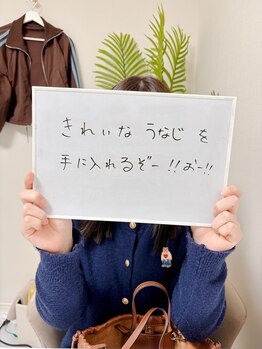 きれいな うなじ を
手に入れるぞー!!おー!!